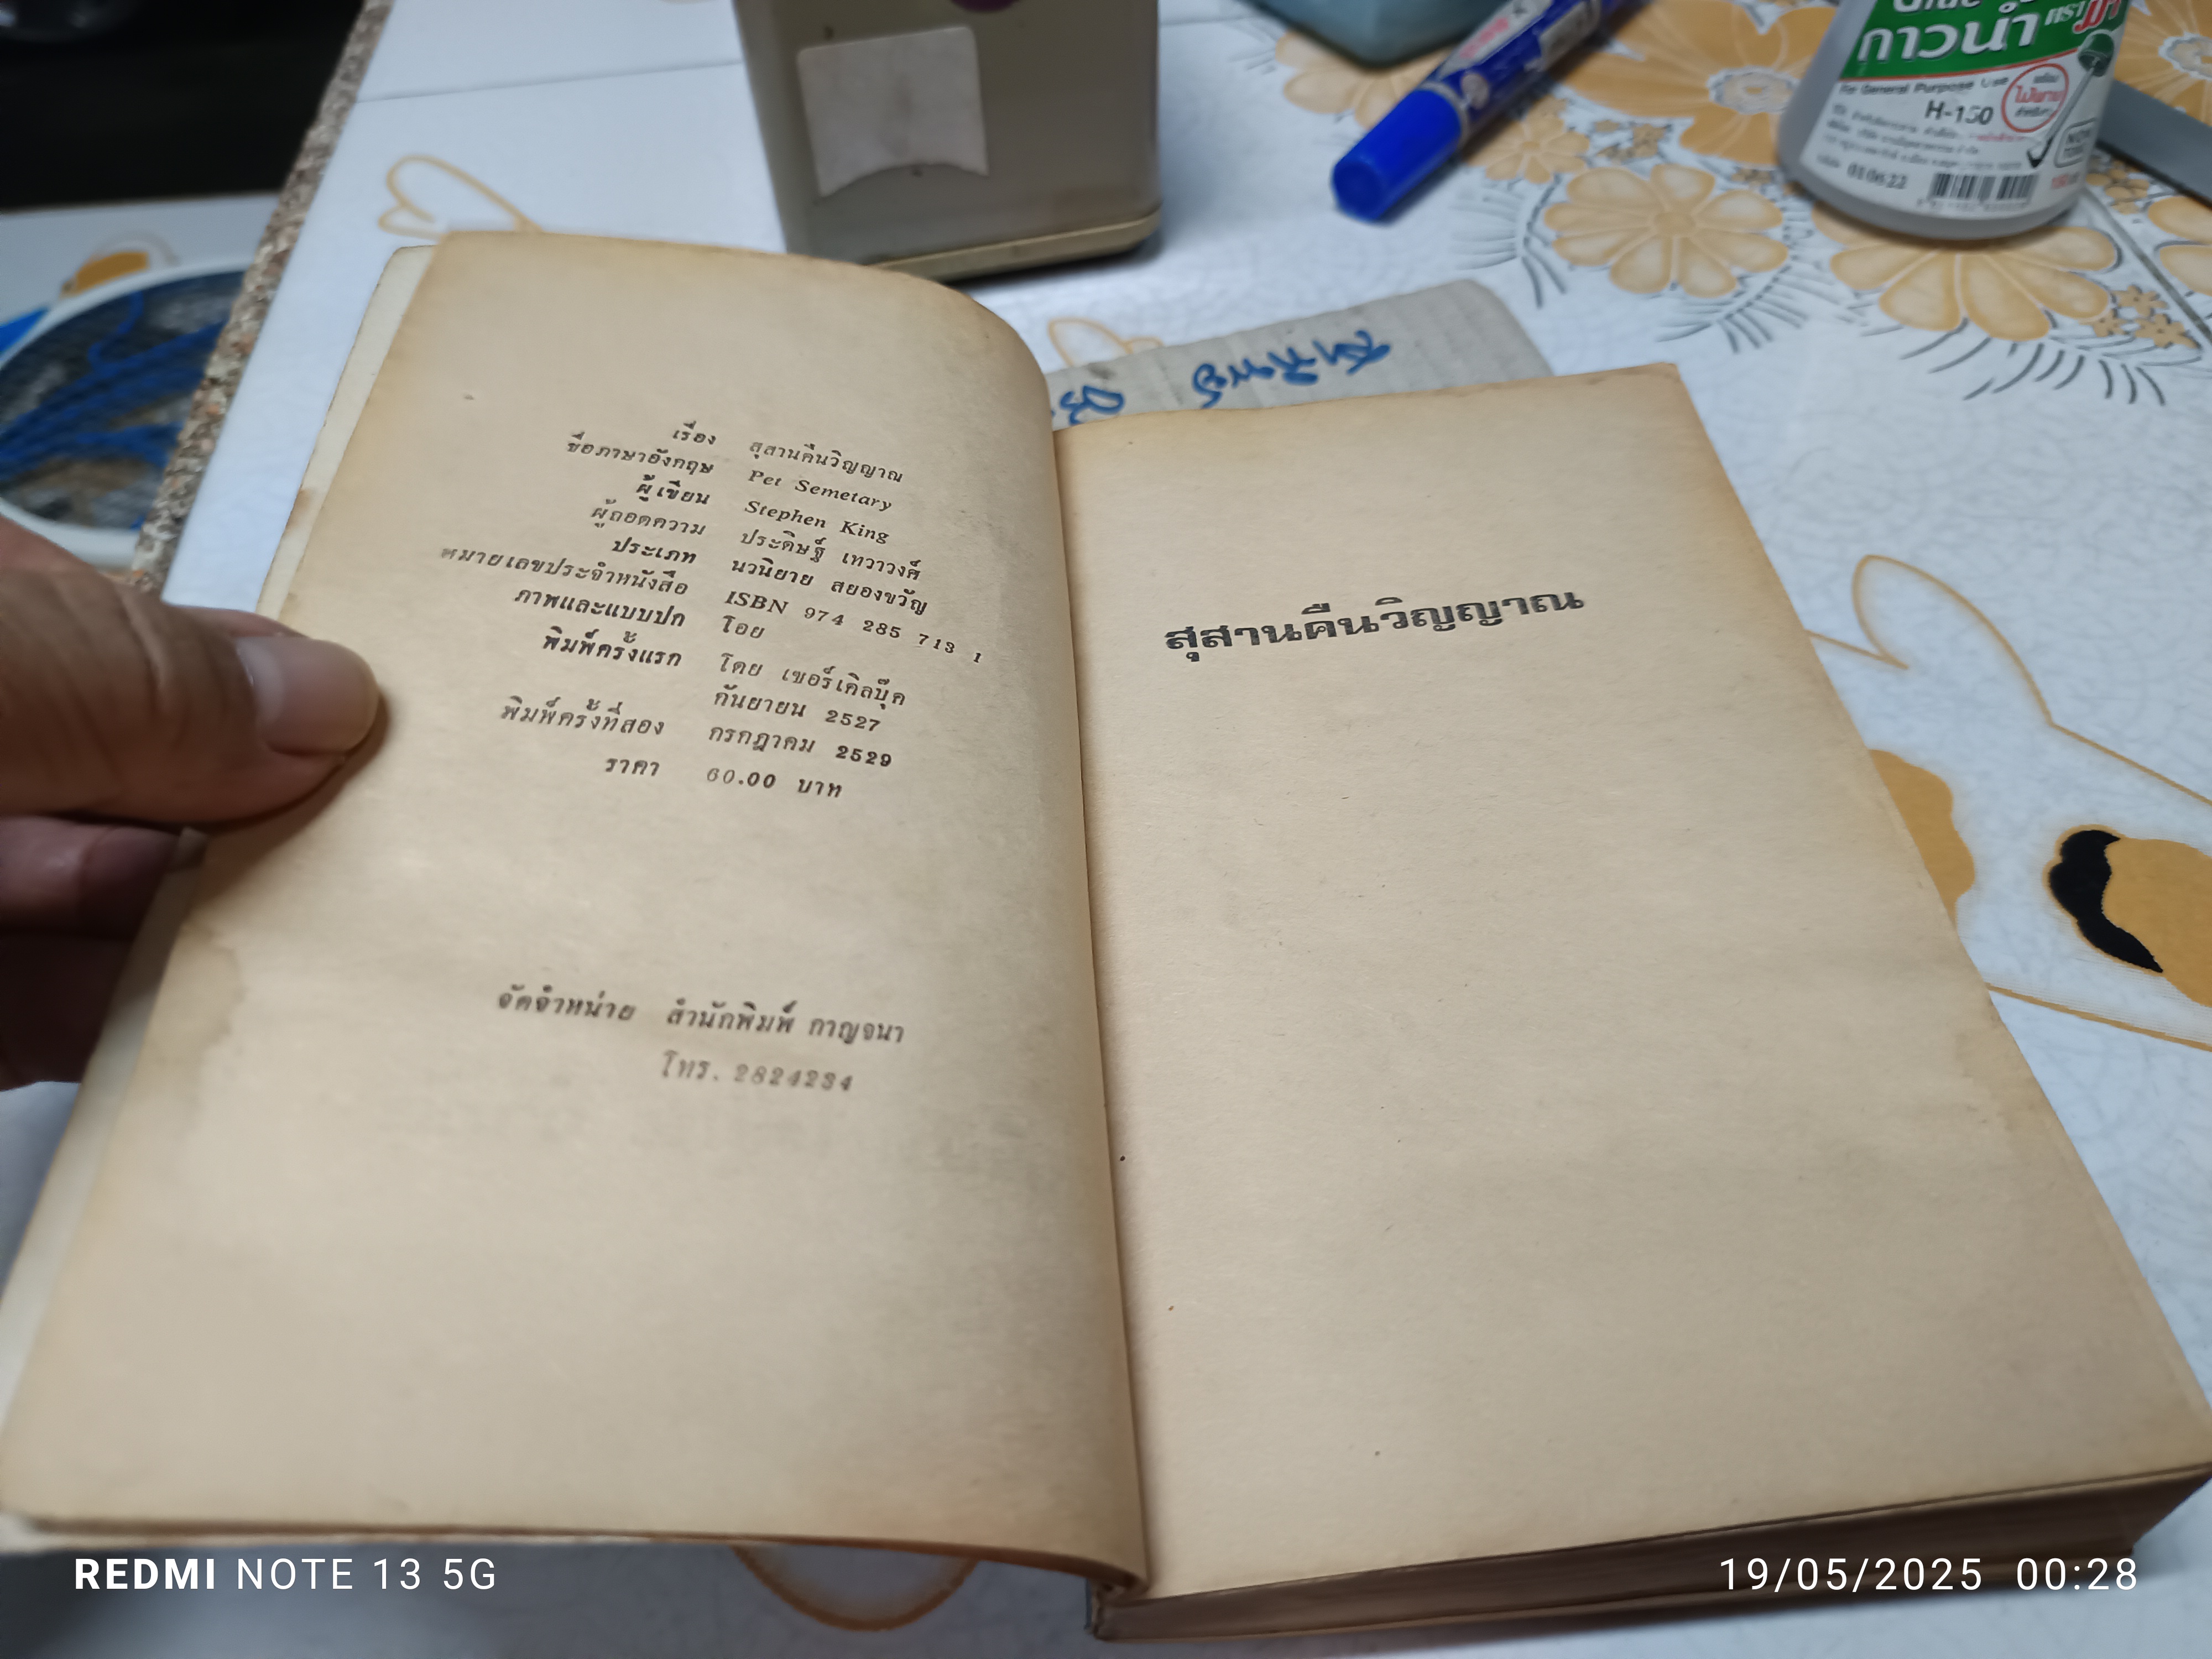 เรื่อง สุสานคืนวิญญาณ
ชื่อภาษาอังกฤษ Pet Semetary
ผู้เขียน Stephen King
ผู้ถอดความ ประดิษฐ์ เทวาวงศ์
ประเภท นวนิยาย สยองขวัญ
หมายเลขประจำหนังสือ ISBN 974 285 713 1
ภาพและแบบปก โอย
พิมพ์ครั้งแรก โดย เซอร์เคิลบุ๊ค
กันยายน 2527
พิมพ์ครั้งที่สอง กรกฎาคม 2529
ราคา 60.00 บาท
จัดจำหน่าย สำนักพิมพ์ กาญจนา
โทร. 2824234
สุสานคืนวิญญาณ
Glue
กาวน้ำ ตราม้า
For General Purpose Use
H-150
010622
REDMI NOTE 13 5G
19/05/2025 00:28